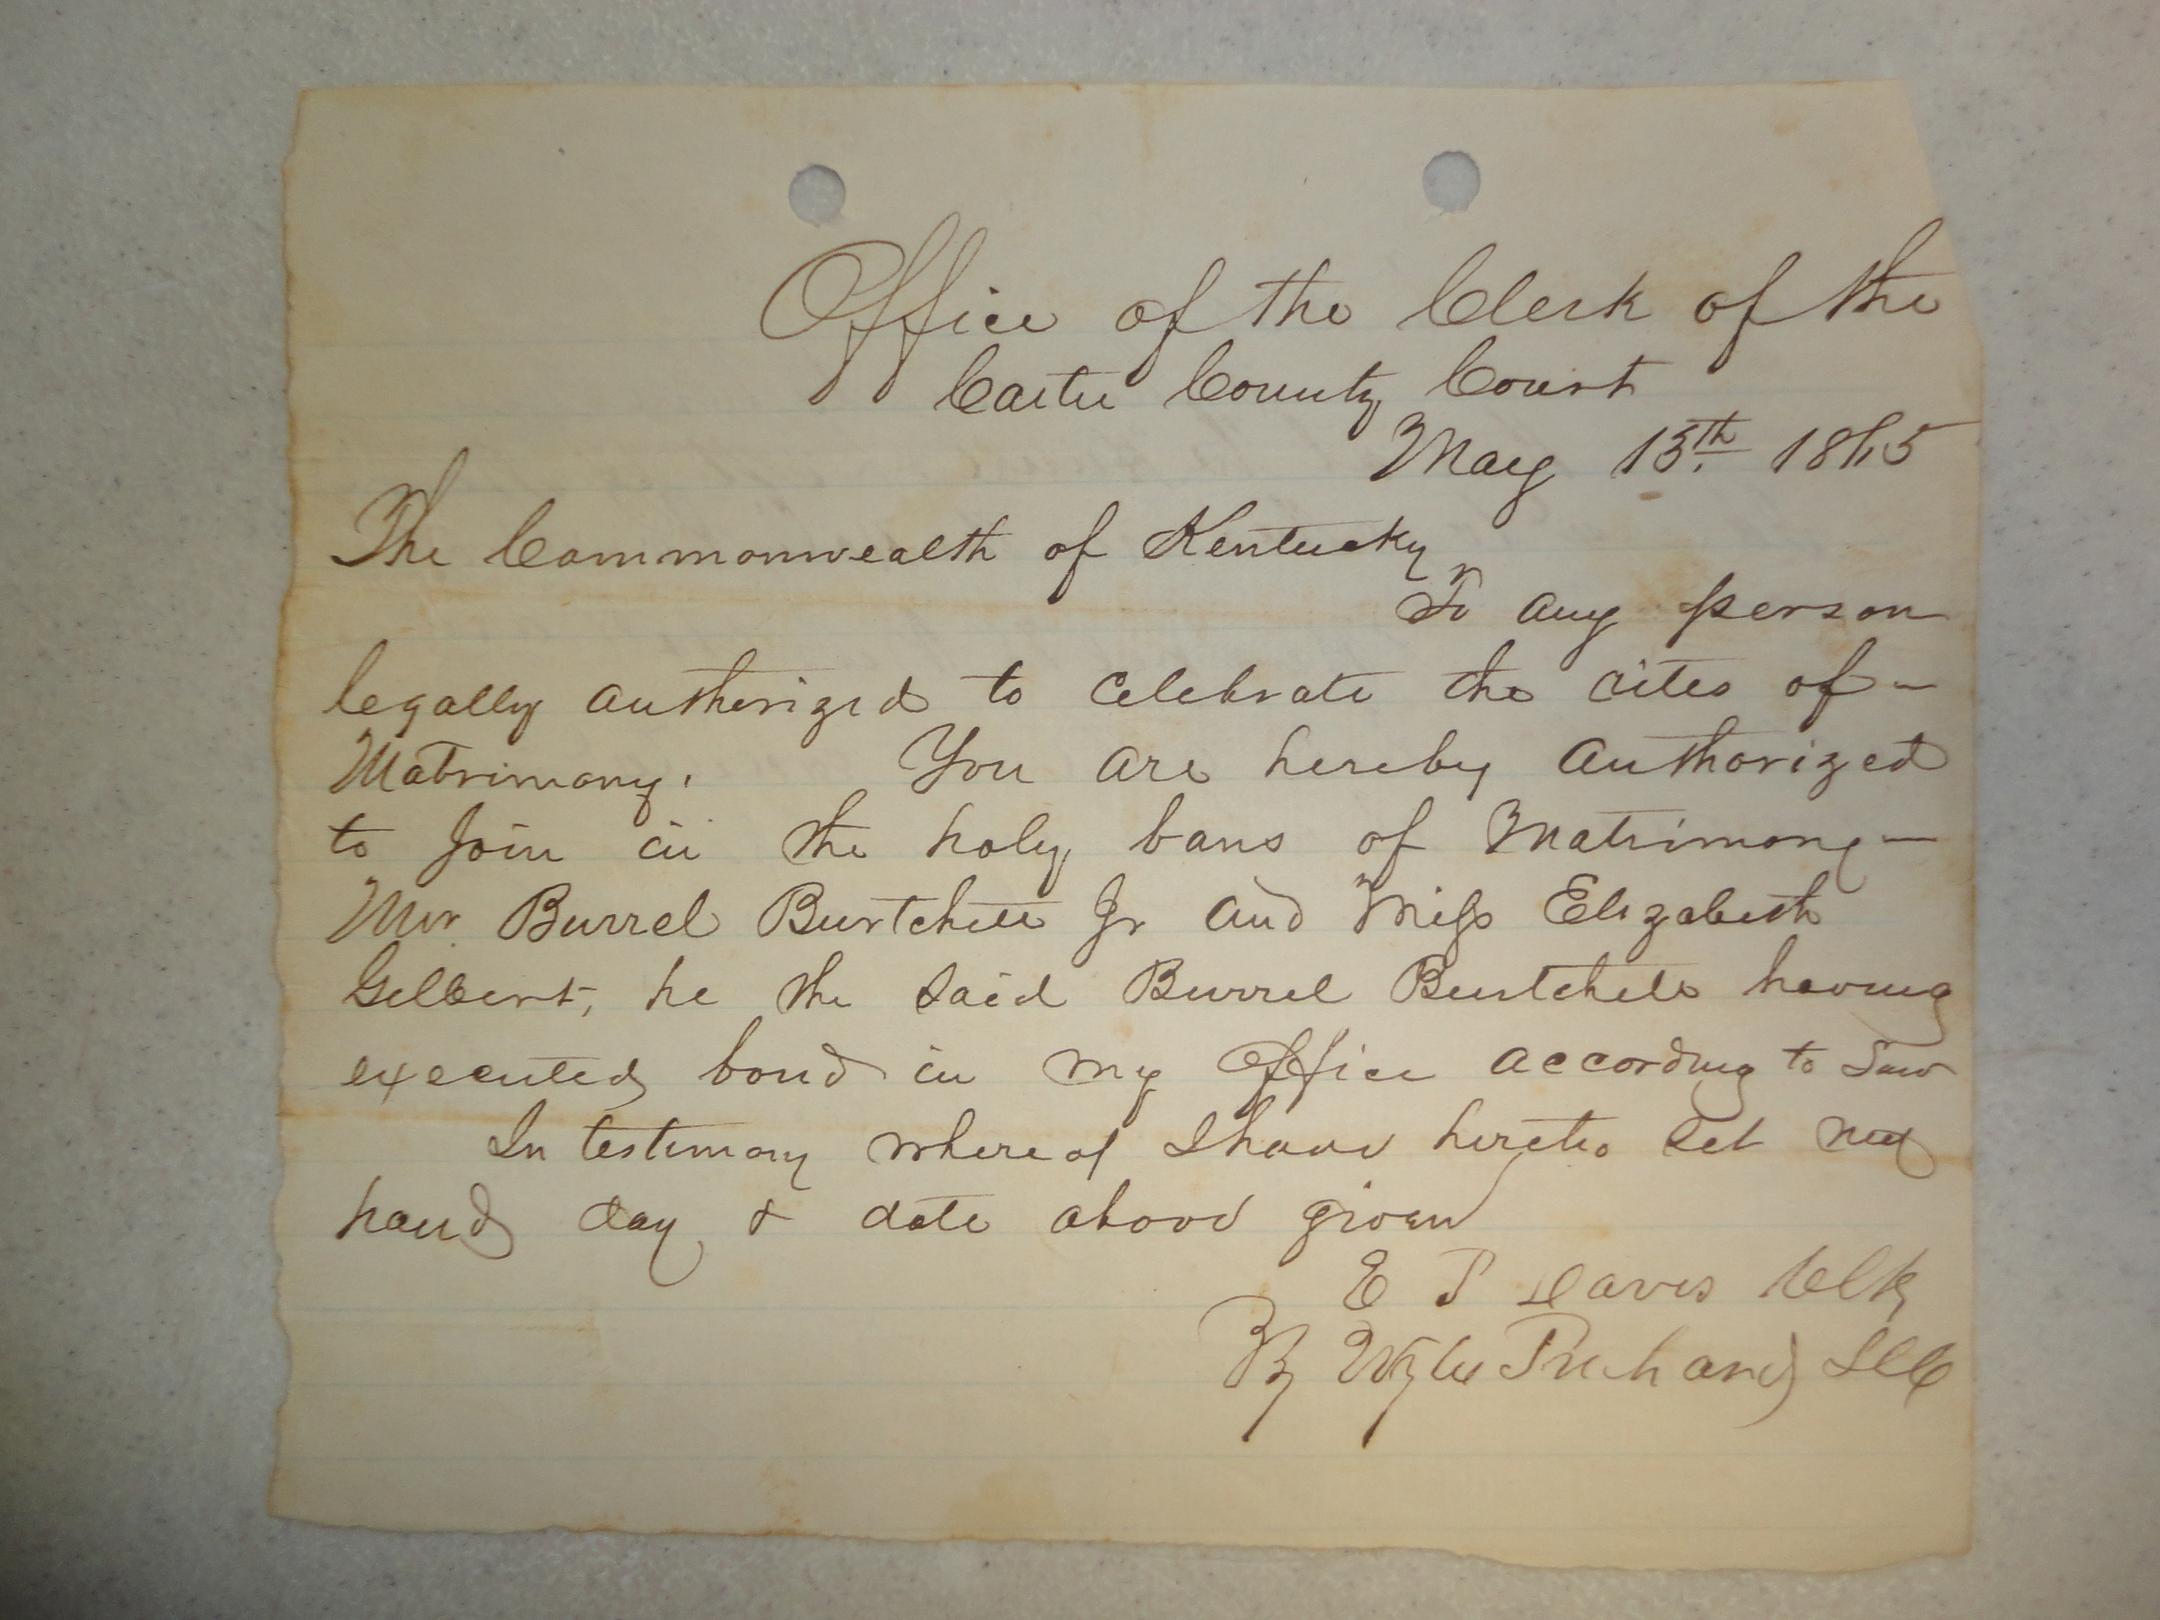 Office of the Clerk of the
Carter County Court
May 13th. 1865
The Commonwealth of Kentucky
To any person
legally authorized to celebrate the rites of -
Matrimony. You are hereby authorized
to Join in the holy bans of Matrimony -
Mr. Burrel Burtchett Jr and Miss Elizabeth
Gilbert, he the said Burrel Burtchett having
executed bond in my Office according to Law
In testimony whereof I have hereto set my
hand day & date above given
E Davis Clk
By Prichard